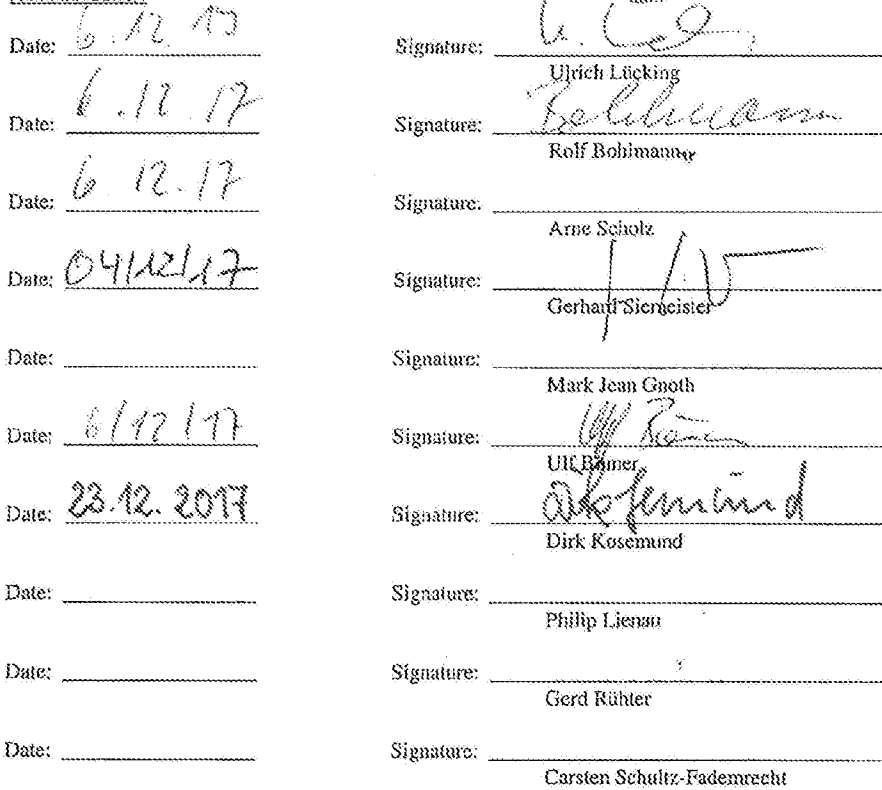 Date: 6.12.17 Signature:
Ulrich Lücking
Date: 6.12.17 Signature: Bohlmann
Rolf Bohlmann
Date: 6.12.17 Signature:
Arne Scholz
Date: 04/12/17 Signature:
Gerhard Siemeister
Date: Signature:
Mark Jean Gnoth
Date: 6/12/17 Signature: Ulf Bömer
Ulf Bömer
Date: 23.12.2017 Signature: Dirk Kosemund
Dirk Kosemund
Date: Signature:
Philip Lienau
Date: Signature:
Gerd Rühter
Date: Signature:
Carsten Schultz-Fademrecht